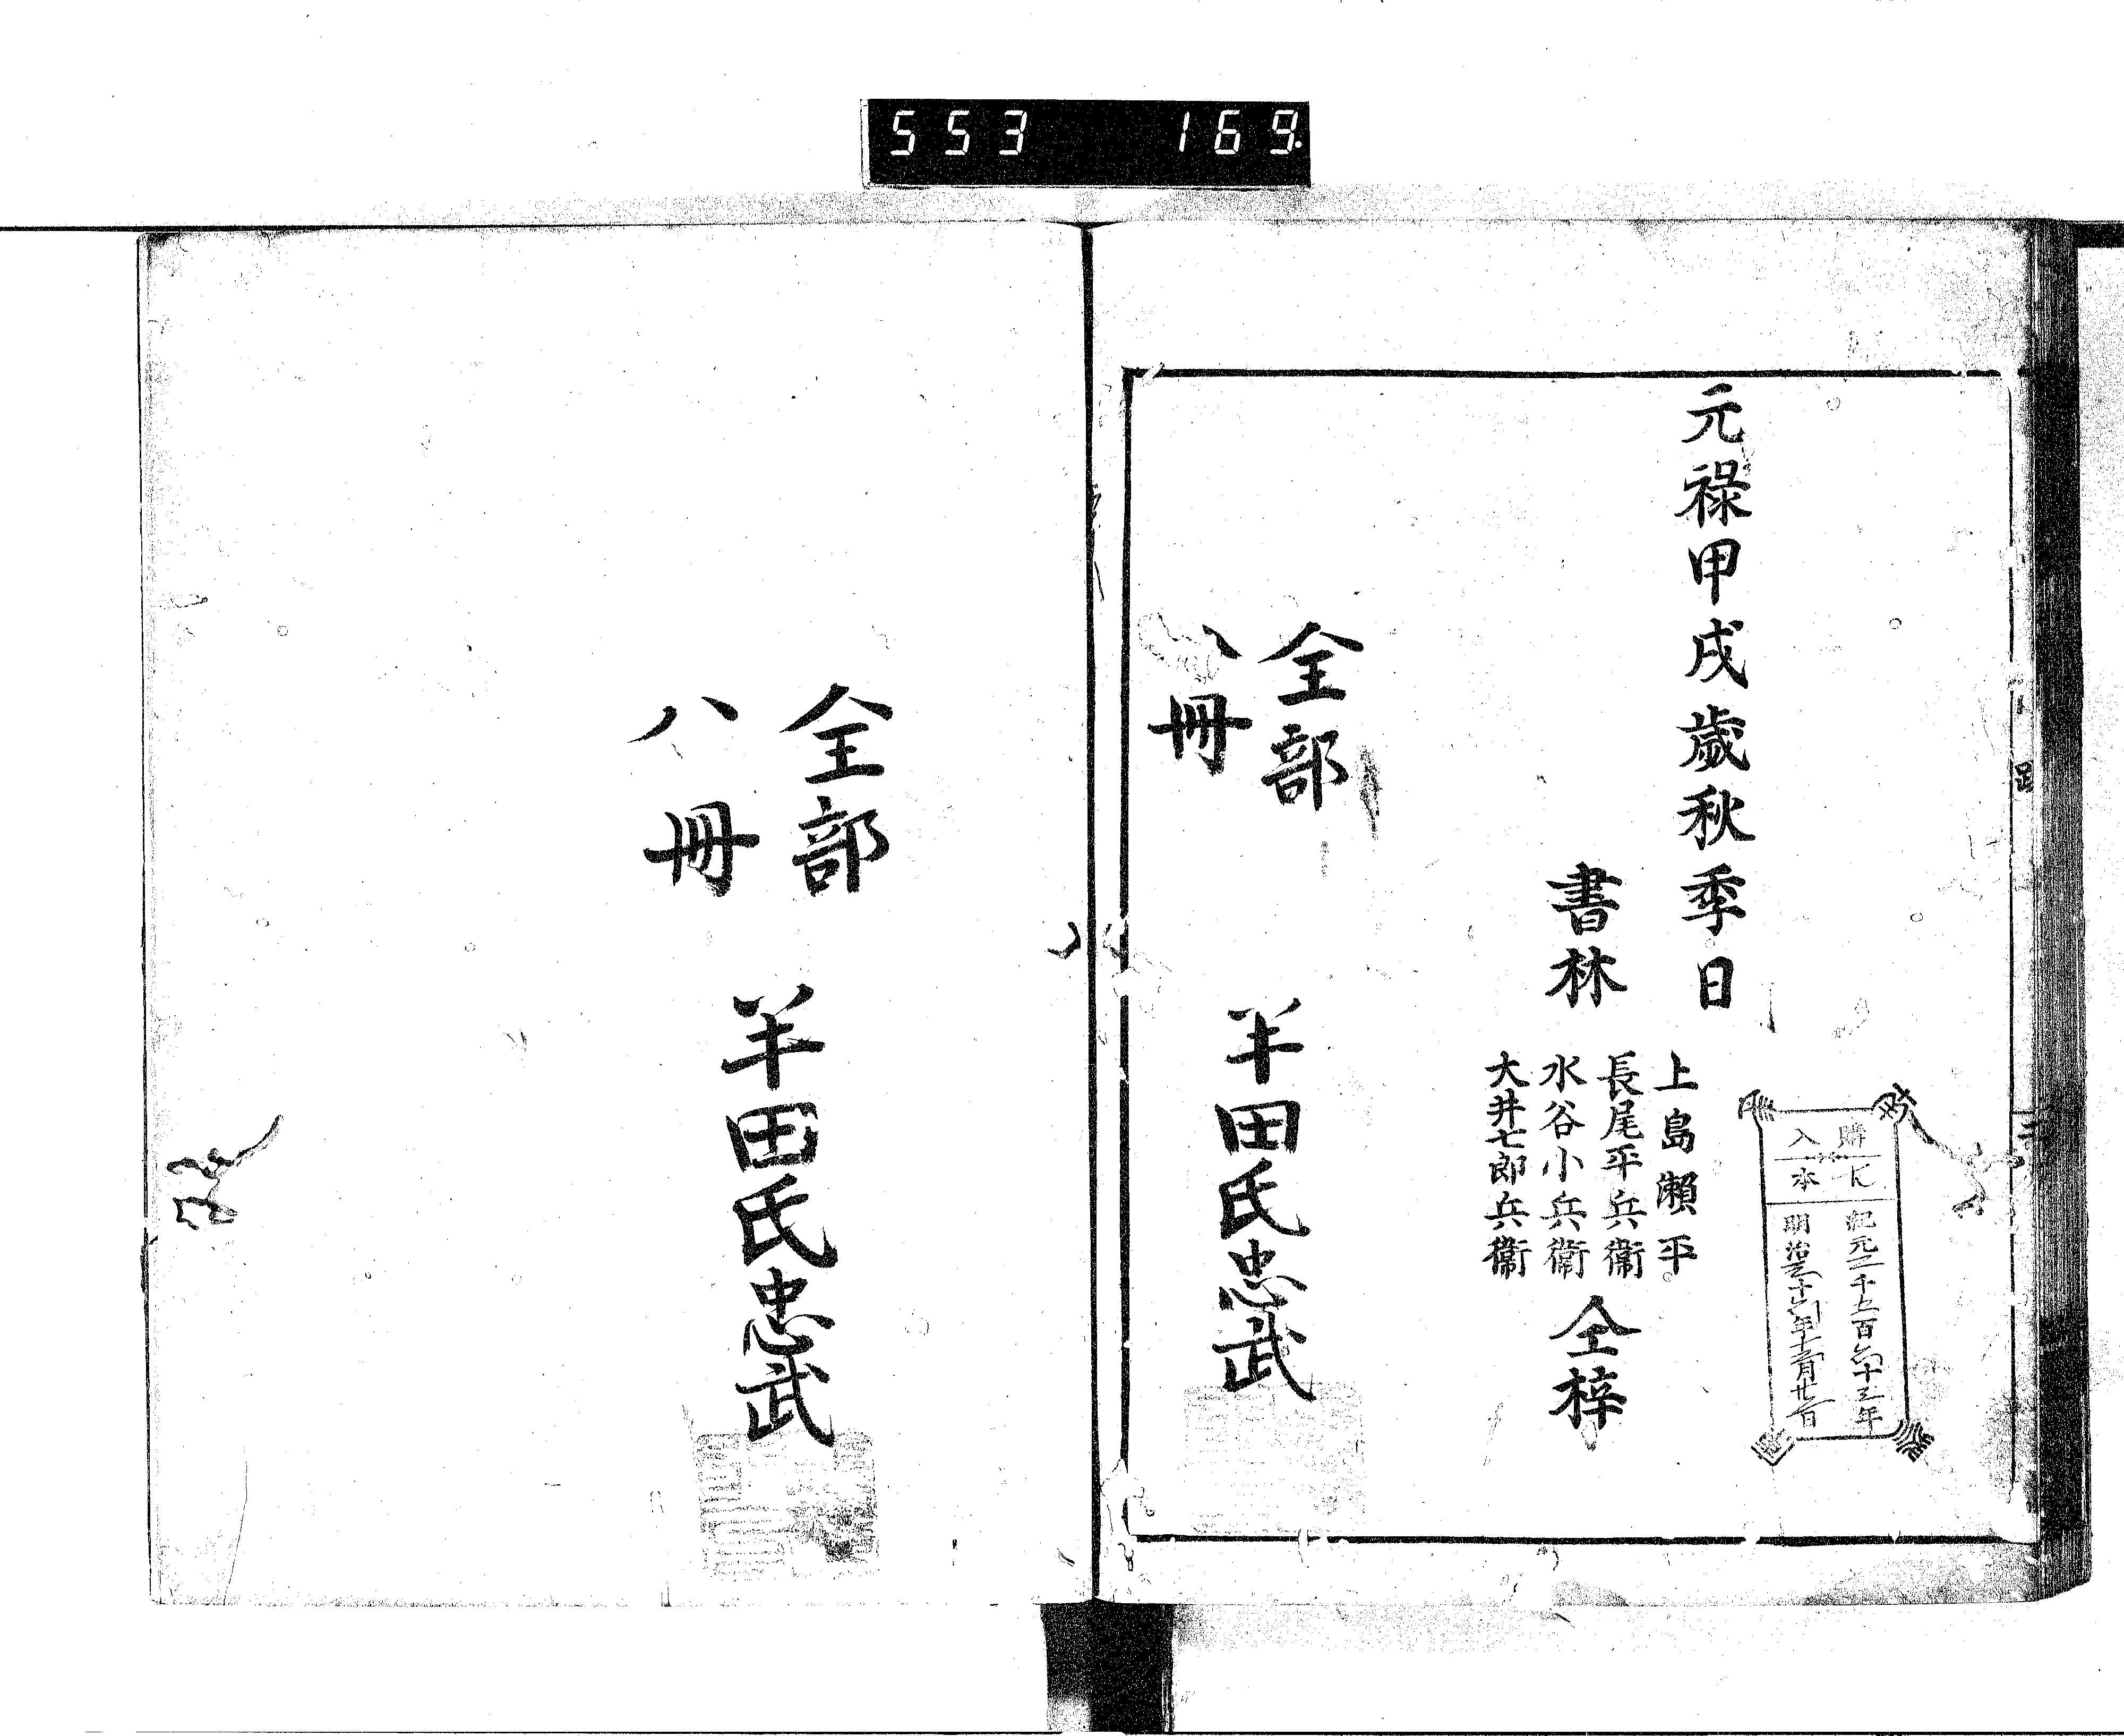 553 169.
元禄甲戌歳秋季日
書林
上島瀬平
長尾平兵衞
水谷小兵衞
大井七郎兵衞
仝梓
購
入本
紀元二千五百六十三年
明治三十六年十二月廿一日
全部
八冊
半田氏忠武
全部
八冊
半田氏忠武